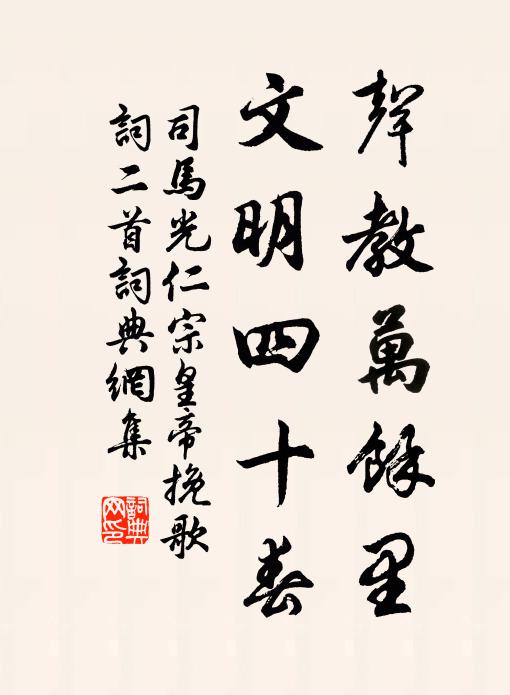 聲教萬餘里
文明四十春
司馬光仁宗皇帝挽歌
詞二首詞典網集
詞典
网印